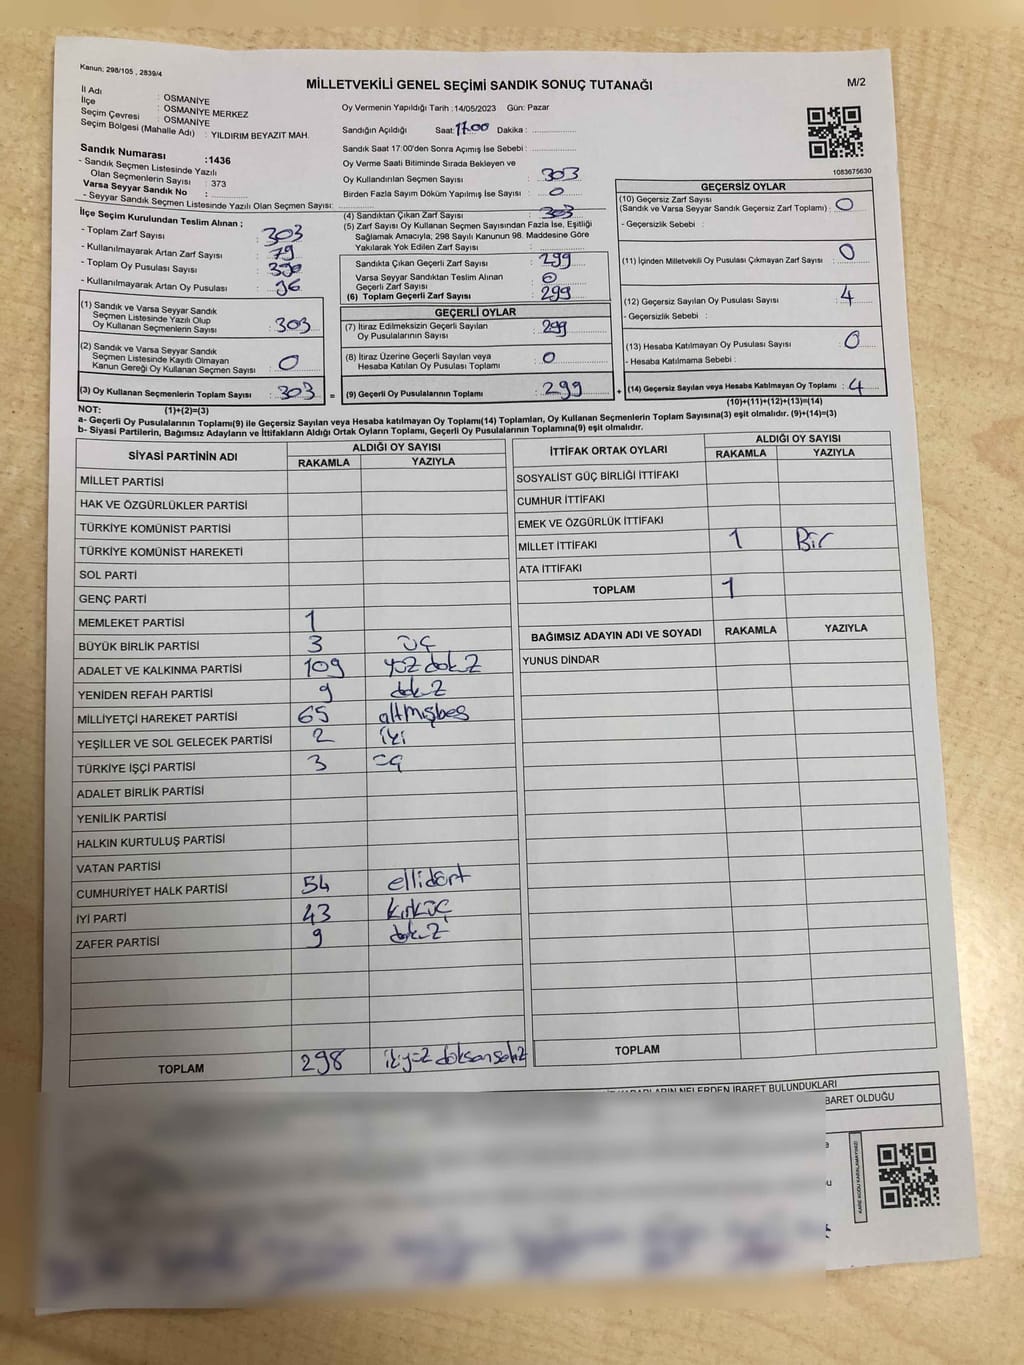 Kanun; 298/105 , 2839/4
MİLLETVEKİLİ GENEL SEÇİMİ SANDIK SONUÇ TUTANAĞI
M/2
İl Adı : OSMANİYE
İlçe : OSMANİYE MERKEZ
Seçim Çevresi : OSMANİYE
Seçim Bölgesi (Mahalle Adı) : YILDIRIM BEYAZIT MAH.
Sandık Numarası :1436
- Sandık Seçmen Listesinde Yazılı
Olan Seçmenlerin Sayısı : 373
Varsa Seyyar Sandık No :
- Seyyar Sandık Seçmen Listesinde Yazılı Olan Seçmen Sayısı:
Oy Vermenin Yapıldığı Tarih :14/05/2023 Gün: Pazar
Sandığın Açıldığı Saat: 17.00 Dakika :
Sandık Saat 17:00'den Sonra Açımış İse Sebebi :
Oy Verme Saati Bitiminde Sırada Bekleyen ve
Oy Kullandırılan Seçmen Sayısı : 303
Birden Fazla Sayım Döküm Yapılmış İse Sayısı : 0
1083675630
İlçe Seçim Kurulundan Teslim Alınan ;
- Toplam Zarf Sayısı : 303
- Kullanılmayarak Artan Zarf Sayısı : 79
- Toplam Oy Pusulası Sayısı :
- Kullanılmayarak Artan Oy Pusulası :
(1) Sandık ve Varsa Seyyar Sandık
Seçmen Listesinde Yazılı Olup
Oy Kullanan Seçmenlerin Sayısı : 303
(2) Sandık ve Varsa Seyyar Sandık
Seçmen Listesinde Kayıtlı Olmayan
Kanun Gereği Oy Kullanan Seçmen Sayısı : 0
(3) Oy Kullanan Seçmenlerin Toplam Sayısı : 303 =
(4) Sandıktan Çıkan Zarf Sayısı : 303
(5) Zarf Sayısı Oy Kullanan Seçmen Sayısından Fazla İse, Eşitliği
Sağlamak Amacıyla; 298 Sayılı Kanunun 98. Maddesine Göre
Yakılarak Yok Edilen Zarf Sayısı :
Sandıkta Çıkan Geçerli Zarf Sayısı : 299
Varsa Seyyar Sandıktan Teslim Alınan
Geçerli Zarf Sayısı : 0
(6) Toplam Geçerli Zarf Sayısı : 299
GEÇERLİ OYLAR
(7) İtiraz Edilmeksizin Geçerli Sayılan
Oy Pusulalarının Sayısı : 299
(8) İtiraz Üzerine Geçerli Sayılan veya
Hesaba Katılan Oy Pusulası Toplamı : 0
(9) Geçerli Oy Pusulalarının Toplamı : 299 +
GEÇERSİZ OYLAR
(10) Geçersiz Zarf Sayısı
(Sandık ve Varsa Seyyar Sandık Geçersiz Zarf Toplamı) : 0
- Geçersizlik Sebebi :
(11) İçinden Milletvekili Oy Pusulası Çıkmayan Zarf Sayısı : 0
(12) Geçersiz Sayılan Oy Pusulası Sayısı : 4
- Geçersizlik Sebebi :
(13) Hesaba Katılmayan Oy Pusulası Sayısı : 0
- Hesaba Katılmama Sebebi :
(14) Geçersiz Sayılan veya Hesaba Katılmayan Oy Toplamı : 4
(10)+(11)+(12)+(13)=(14)
NOT: (1)+(2)=(3)
a- Geçerli Oy Pusulalarının Toplamı(9) ile Geçersiz Sayılan veya Hesaba katılmayan Oy Toplamı(14) Toplamları, Oy Kullanan Seçmenlerin Toplam Sayısına(3) eşit olmalıdır. (9)+(14)=(3)
b- Siyasi Partilerin, Bağımsız Adayların ve İttifakların Aldığı Ortak Oyların Toplamı, Geçerli Oy Pusulalarının Toplamına(9) eşit olmalıdır.
SİYASİ PARTİNİN ADI ALDIĞI OY SAYISI
RAKAMLA YAZIYLA
MİLLET PARTİSİ
HAK VE ÖZGÜRLÜKLER PARTİSİ
TÜRKİYE KOMÜNİST PARTİSİ
TÜRKİYE KOMÜNİST HAREKETİ
SOL PARTİ
GENÇ PARTİ
MEMLEKET PARTİSİ 1
BÜYÜK BİRLİK PARTİSİ 3 üç
ADALET VE KALKINMA PARTİSİ 109 yüz dokuz
YENİDEN REFAH PARTİSİ 9 dokuz
MİLLİYETÇİ HAREKET PARTİSİ 65 altmışbeş
YEŞİLLER VE SOL GELECEK PARTİSİ 2 iki
TÜRKİYE İŞÇİ PARTİSİ 3 üç
ADALET BİRLİK PARTİSİ
YENİLİK PARTİSİ
HALKIN KURTULUŞ PARTİSİ
VATAN PARTİSİ
CUMHURİYET HALK PARTİSİ 54 ellidört
İYİ PARTİ 43 kırküç
ZAFER PARTİSİ 9 dokuz
TOPLAM 298 ikiyüz doksansekiz
İTTİFAK ORTAK OYLARI ALDIĞI OY SAYISI
RAKAMLA YAZIYLA
SOSYALİST GÜÇ BİRLİĞİ İTTİFAKI
CUMHUR İTTİFAKI
EMEK VE ÖZGÜRLÜK İTTİFAKI
MİLLET İTTİFAKI 1 Bir
ATA İTTİFAKI
TOPLAM 1
BAĞIMSIZ ADAYIN ADI VE SOYADI RAKAMLA YAZIYLA
YUNUS DİNDAR
TOPLAM
NELERDEN İBARET BULUNDUKLARI
BARET OLDUĞU